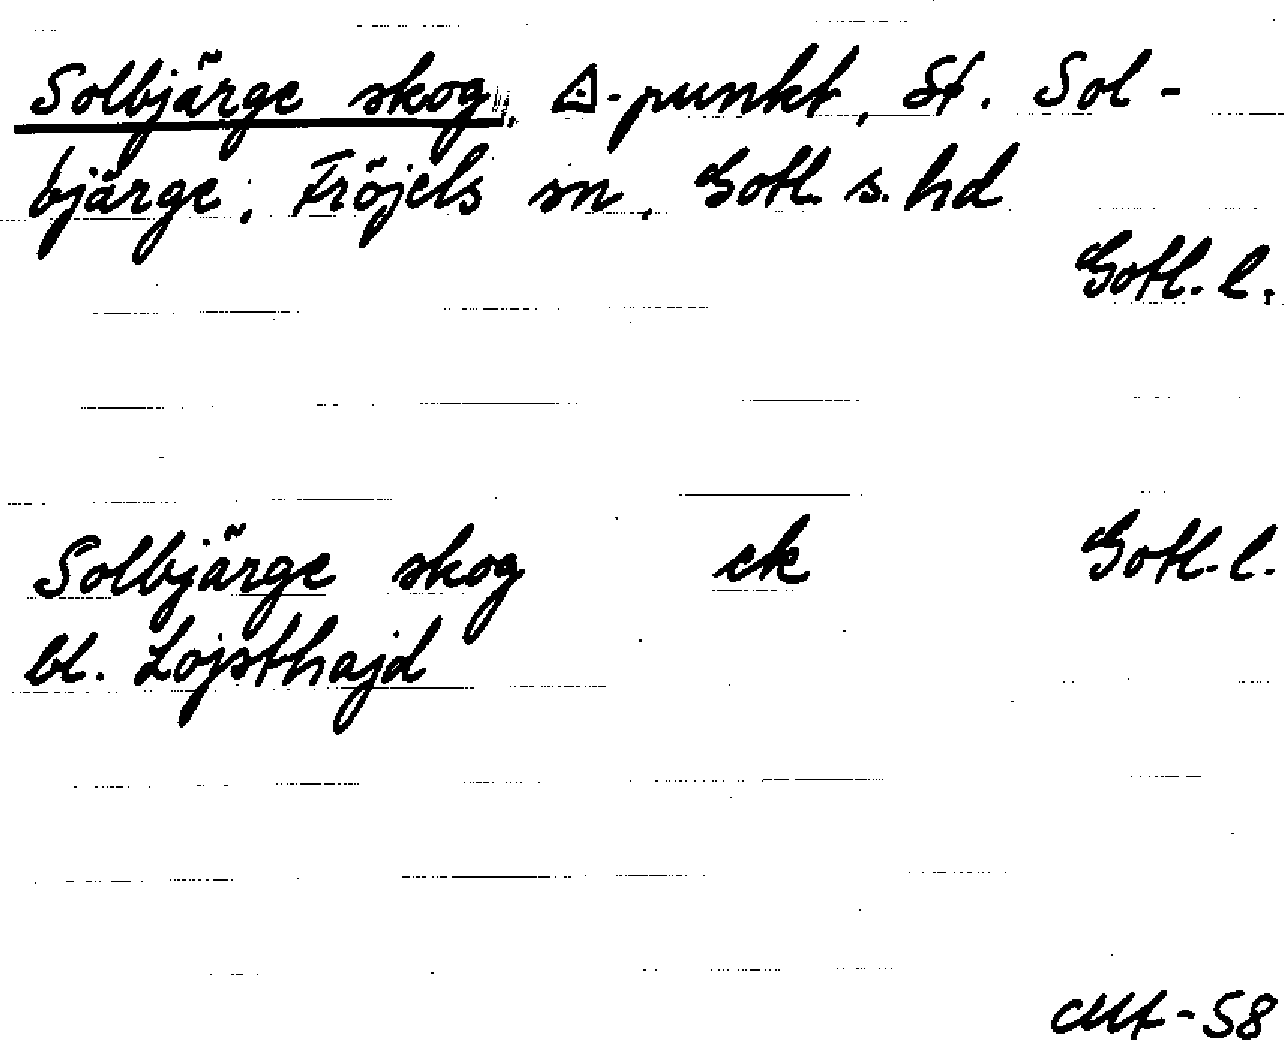 Solbjärge skog, △-punkt, St. Sol-
bjärge, Fröjels sn, Gotl. s. hd
Gotl. l.
Solbjärge skog ek Gotl. l.
bl. Lojsthajd
-58